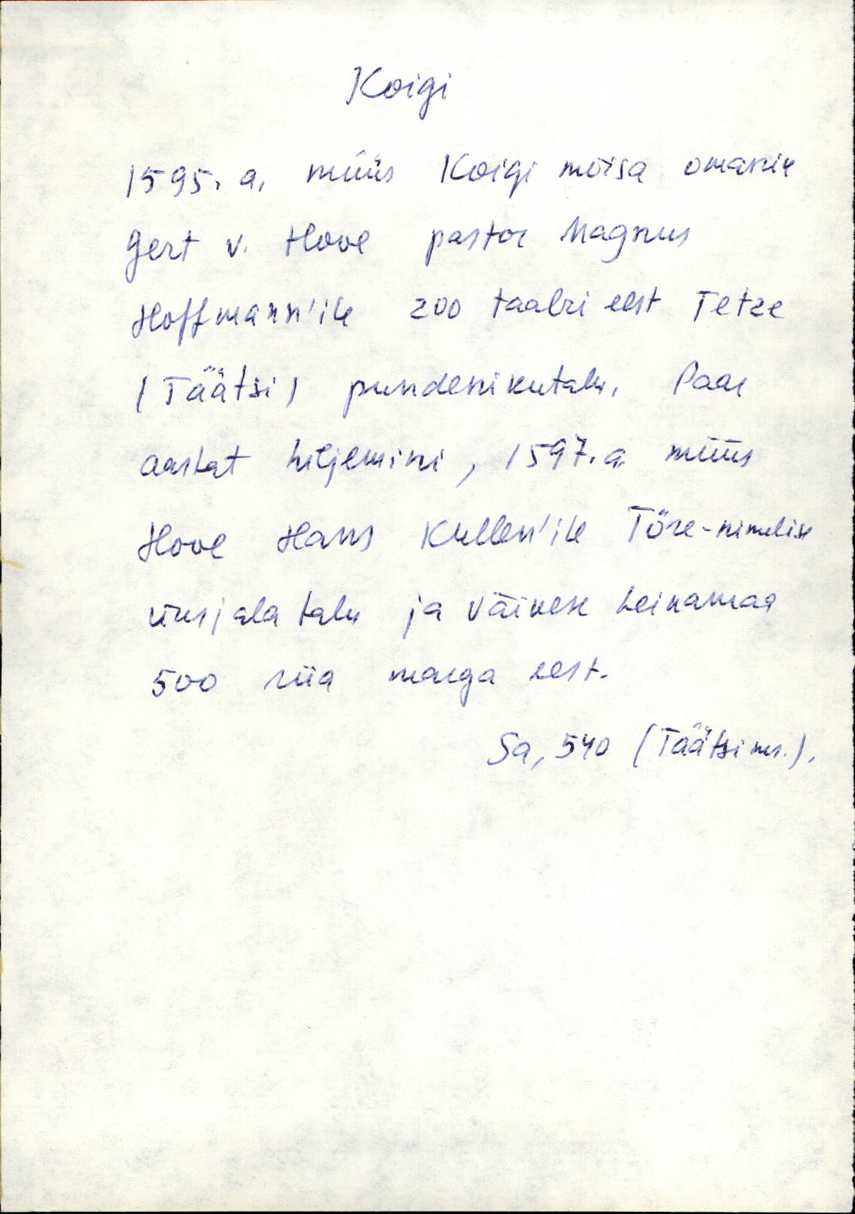 Koigi
1595. a. müüs Koigi mõisa omanik
Gert v. Hove pastor Magnus
Hoffmann'ile 200 taalri eest Tetze
(Täätsi) pundenikutalu. Paar
aastat hiljemini, 1597. a. müüs
Hove Hans Kullen'ile Töre-nimelise
üksjala talu ja väikese heinamaa
500 riia marga eest.
Sa, 540 (Täätsi ms.).